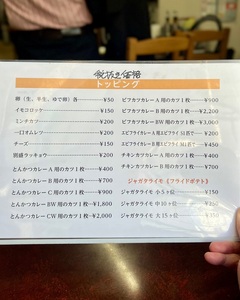 税抜き価格
トッピング
卵（生、半生、ゆで卵）各 ¥50
イモコロッケ ¥150
ミンチカツ ¥200
一口オムレツ ¥200
チーズ ¥150
別盛ラッキョウ ¥200
とんかつカレーA用のカツ1枚 ¥400
とんかつカレーB用のカツ1枚 ¥700
とんかつカレーC用のカツ1枚 ¥900
とんかつカレーBW用のカツ1枚 ¥1,800
とんかつカレーCW用のカツ1枚 ¥2,000
ビフカツカレーA用のカツ1枚
ビフカツカレーB用のカツ1枚 ¥1,000
ビフカツカレーBW用のカツ1枚 ¥2,200
エビフライカレーA用エビフライ
エビフライカレーB用エビフライ
チキンカツカレーA用のカツ1枚 ¥400
チキンカツカレーB用のカツ1枚 ¥700
ジャガタライモ《フライドポテト》
ジャガタライモ 小5ヶ
ジャガタライモ 中10ヶ
ジャガタライモ 大15ヶ